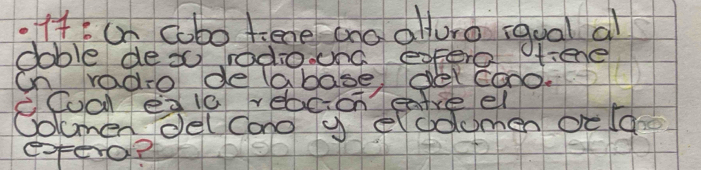 •17: Un Cubo tiene una alturo igual al
doble de su rodio.una esfera tiene
un radio de la base, del cono.
¿Cual es la relación entre el
Volumen del Cono y el volumen de la
esfera?